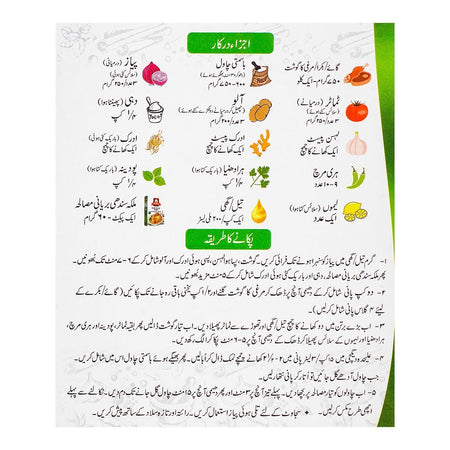 اجزاء درکار
گائے/بکرا/مرغی کا گوشت
۷۵۰ گرام-ایک کلو
باسمتی چاول
۶۰۰-۷۵۰ گرام
پیاز (درمیانی)
(سلائس کی ہوئی)
۳ عدد/۲۵۰ گرام
ٹماٹر (درمیانے)
(سلائس کئے ہوئے)
۳ عدد/۲۵۰ گرام
آلو
۳ عدد/۲۰۰ گرام
دہی (پھینٹا ہوا)
کپ
لہسن پیسٹ
ایک کھانے کا چمچ
ادرک پیسٹ
ایک کھانے کا چمچ
ادرک (باریک کٹی ہوئی)
ایک کھانے کا چمچ
ہری مرچ
۹-۱۰ عدد
ہرا دھنیا (باریک کٹا ہوا)
کپ
پودینہ (باریک کٹا ہوا)
کپ
لیموں (سلائس کٹا ہوا)
ایک عدد
تیل/گھی
ایک کپ/۲۰۰ ملی لیٹر
ملکہ سندھی بریانی مصالحہ
ایک پیکٹ-۶۰ گرام
پکانے کا طریقہ
۱- گرم تیل/گھی میں پیاز کو سنہرا ہونے تک فرائی کریں۔ گوشت، پسا ہوا لہسن، پسی ہوئی ادرک اور آلو شامل کر کے ۶-۷ منٹ تک بھونیں۔
پھر ملکہ سندھی بریانی مصالحہ، دہی اور باریک کٹی ہوئی ادرک شامل کر کے ۵ منٹ مزید بھونیں۔
۲- دو کپ پانی شامل کر کے دھیمی آنچ پر ڈھک کر مرغی کا گوشت گلنے اور ۱/۲ کپ یخنی باقی رہ جانے تک پکائیں۔ (گائے/بکرے کے
لیے ۴ گلاس پانی شامل کریں)
۳- اب بڑے برتن میں دو کھانے کا چمچ تیل/گھی اور تھوڑے سے ٹماٹر پھیلا دیں۔ اب تیار گوشت ڈالیں پھر بقیہ ٹماٹر، پودینہ اور ہری مرچ،
ہرا دھنیا اور لیموں کے سلائس پھیلا کر ڈھک کے دھیمی آنچ پر ۵-۶ منٹ پکا کر اتار لیں۔
۴- علیحدہ دیگچی میں ۱۵ کپ/۳ لیٹر پانی میں ۲ کھانے کے چمچے نمک ڈال کر اُبالیں۔ پھر بھیگے ہوئے باسمتی چاول اس میں شامل کریں۔
جب چاول آدھے گل جائیں تو اُتار کر پانی نتھار لیں۔
۵- اب چاولوں کو تیار مصالحہ پر بچھا دیں۔ پہلے تیز آنچ پر ۳ منٹ اور پھر دھیمی آنچ پر ۱۵ منٹ چاول گل جانے تک دم دیں۔ نکالنے سے پہلے
اچھی طرح مکس کر لیں۔ ● سجاوٹ کے لئے تلی ہوئی پیاز استعمال کریں۔ رائتہ اور تازہ سلاد کے ساتھ پیش کریں۔